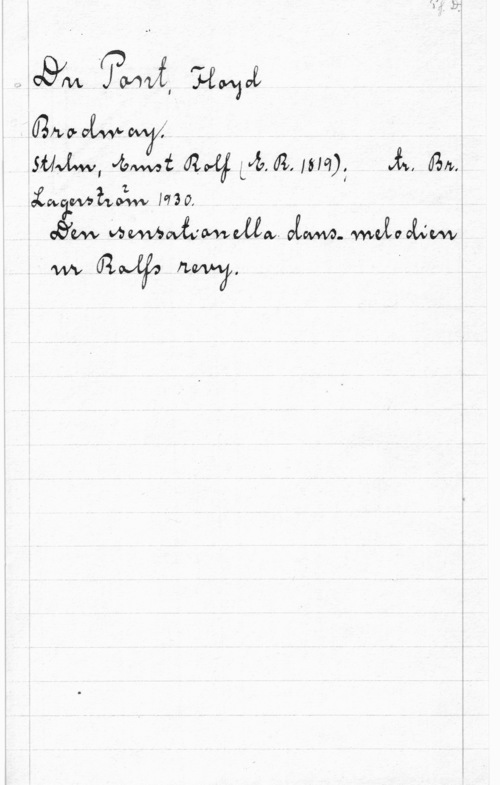 Pf. D.
Du Pont, Floyd
Brodway.
Sthlm, Ernst Rolf (E. R. 1819); tr. Br.
Lagerström 1930.
Den sensationella dans-melodien
ur Rolfs revy.